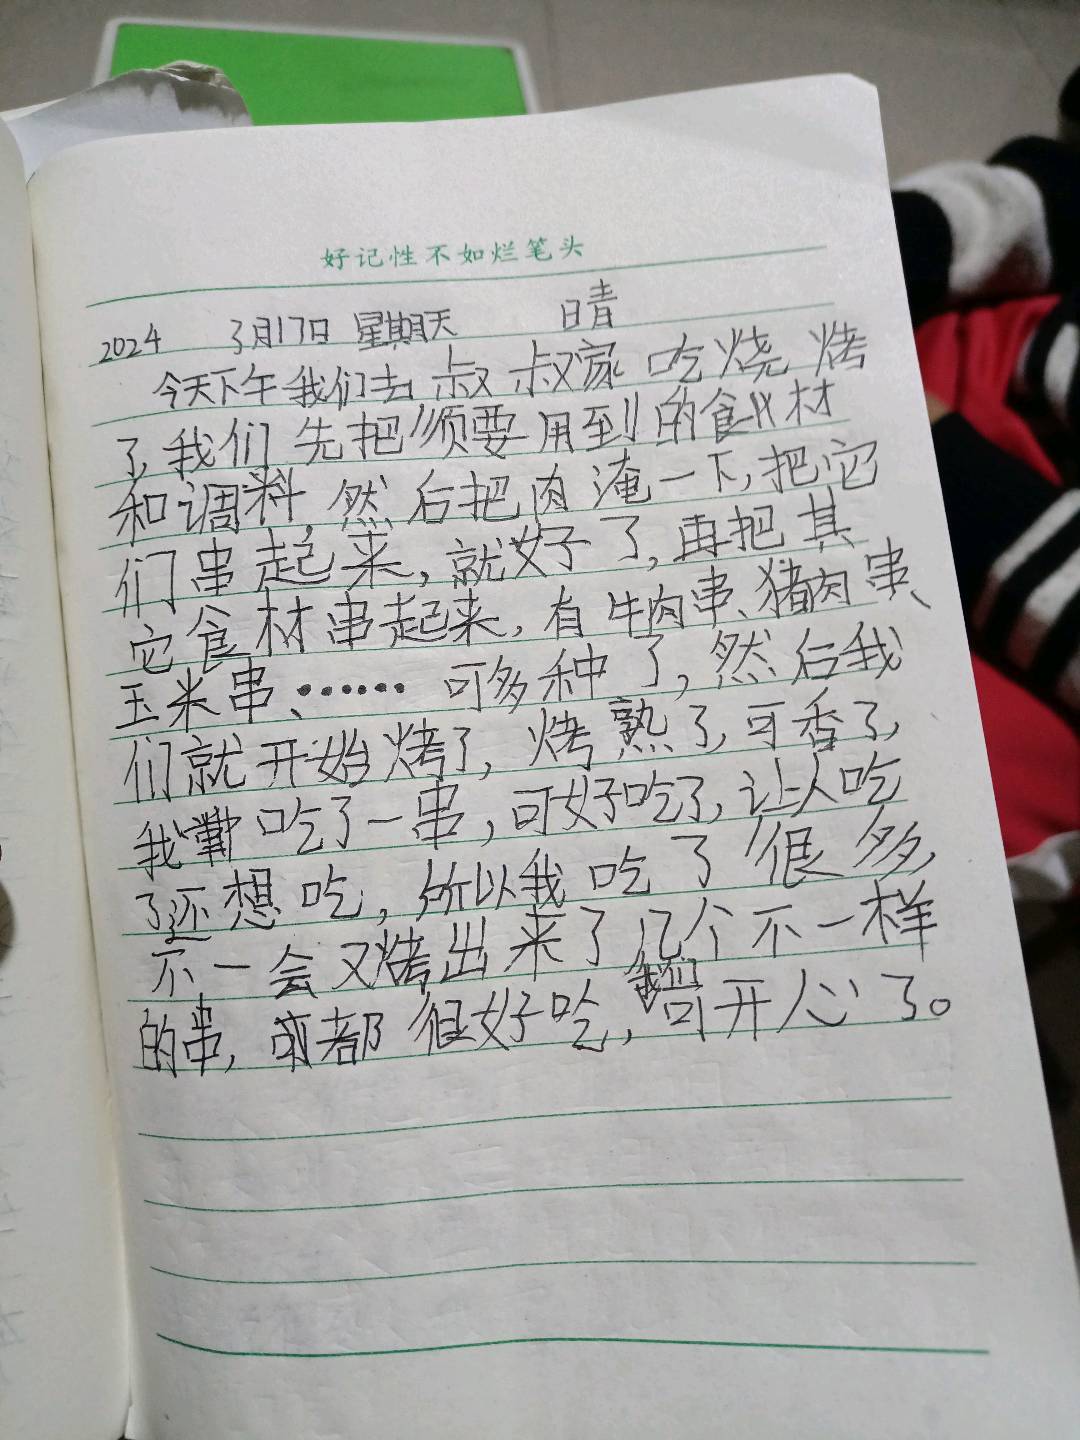 好记性不如烂笔头
2024 3月17日 星期天 晴
今天下午我们去叔叔家吃烧烤
了,我们先把须要用到的食材
和调料,然后把肉淹一下,把它
们串起来,就好了,再把其
它食材串起来,有牛肉串、猪肉串、
玉米串、……可多种了,然后我
们就开始烤了,烤熟了,可香了,
我嚐吃了一串,可好吃了,让人吃
了还想吃,所以我吃了很多,
不一会又烤出来了几个不一样
的串,都很好吃,我们可开心了。